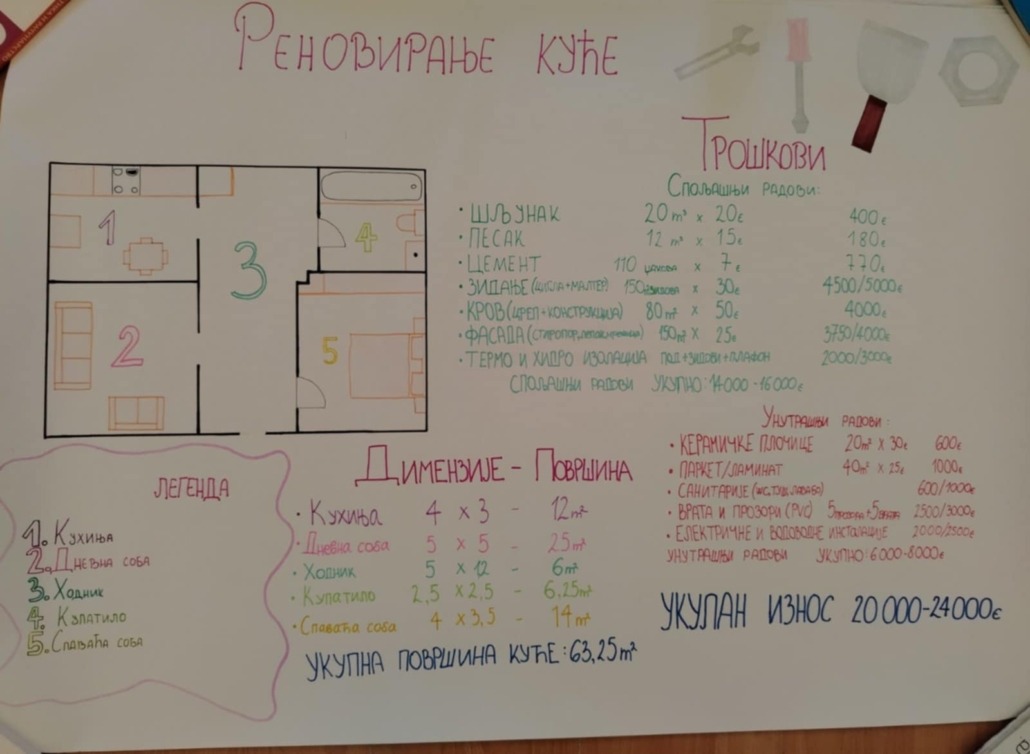 Реновирање куће
Трошкови
Спољашњи радови:
• Шљунак 20 m³ x 20€ 400€
• Песак 12 m³ x 15€ 180€
• Цемент 110 џакова x 7€ 770€
• Зидање (цигла+малтер) 150 зидова x 30€ 4500/5000€
• Кров (цреп+конструкција) 80m² x 50€ 4000€
• Фасада (стиропор, 150m² x 25€ 3750/4000€
• Термо и хидро изолација под+зидови+плафон 2000/3000€
Спољашни радови укупно: 14000-16000€
Унутрашњи радови:
• Керамичке плочице 20m² x 30€ 600€
• Паркет/ламинат 40m² x 25€ 1000€
• Санитарије (wc, туш, лавабо) 600/1000€
• Врата и прозори (PVC) 5 прозора+5 врата 2500/3000€
• Електричне и водоводне инсталације 2000/2500€
Унутрашњи радови укупно: 6000-8000€
Укупан износ 20000-24000€
1
2
3
4
5
Легенда
1. Кухиња
2. Дневна соба
3. Ходник
4. Купатило
5. Спаваћа соба
Димензије - Површина
• Кухиња 4 x 3 - 12m²
• Дневна соба 5 x 5 - 25m²
• Ходник 5 x 12 - 6m²
• Купатило 2,5 x 2,5 - 6,25m²
• Спаваћа соба 4 x 3,5 - 14m²
Укупна површина куће: 63,25m²